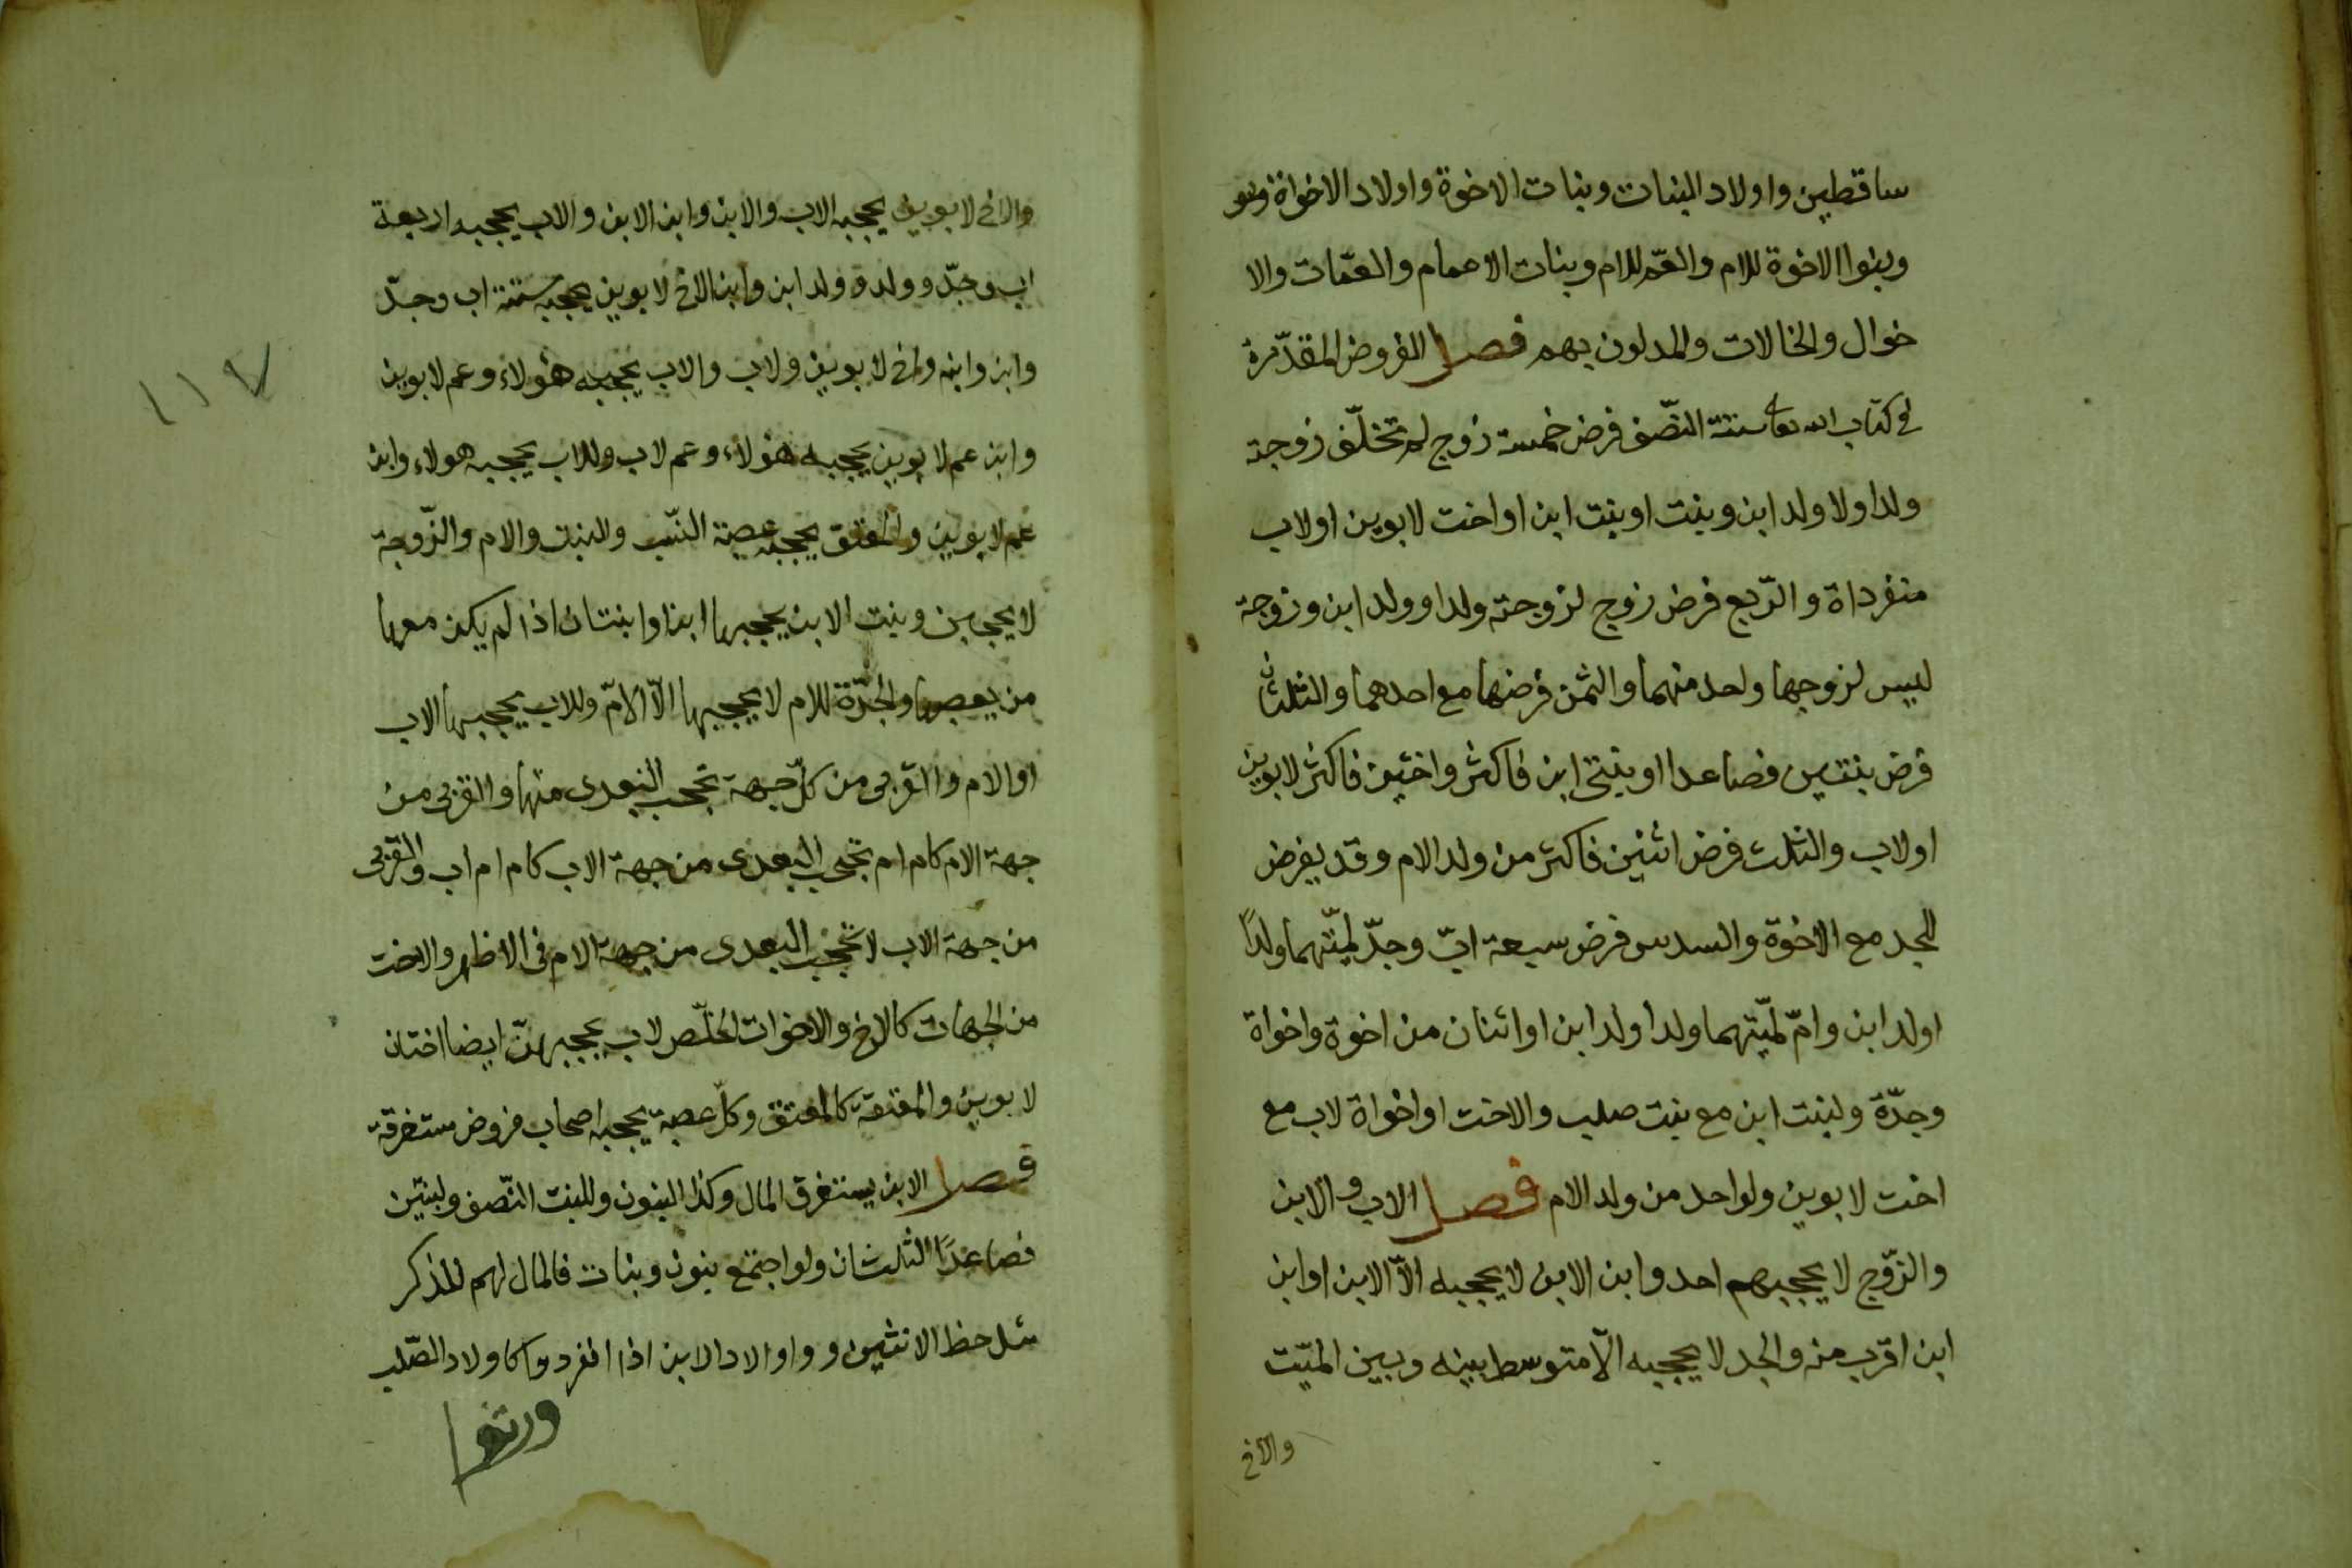 ساقطين واولاد البنات وبنات الاخوة واولاد الاخواة وبنو
وبنوا الاخوة للام والعمّ للام وبنات الاعمام والعمّات والا
خوال والخالات والمدلون بهم فصل الفروض المقدّرة
فى كتاب الله تعا ستة النّصف فرض خمسة زوج لم تخلّف زوجة
ولدا ولا ولد ابن وبنت او بنت ابن او اخت لابوين او لاب
منفرداة والرّبع فرض زوج لزوجته ولدا و ولد ابن وزوجة
ليس لزوجها واحد منهما والثمن فرضها مع احدهما والثلثان
فرض بنتين فصاعدا او بنتى ابن فاكثر واختين فاكثر لابوين
او لاب والثلث فرض اثنين فاكثر من ولد الام وقد يفرض
للجد مع الاخوة والسدس فرض سبعة ابّ وجدّ لميّتهما ولداً
او لد ابن وامّ لميّتهما ولدا ولد ابن او اثنان من اخوة واخواة
وجدّة ولبنت ابن مع بنت صلب والاخت او اخواة لاب مع
اخت لابوين ولواحد من ولد الام فصل الاب والابن
والزّوج لا يحجبهم احد وابن الابن لا يحجبه الّا الابن او ابن
ابن اقرب منه والجد لا يحجبه الّا متوسط بينه وبين الميّت
والاخ
والاخ لابوين يحجبه الاب والابن وابن الابن والاب يحجبه اربعة
اب وجدّ و ولد و ولد ابن وابن الاخ لابوين يحجبه ستة اب وجدّ
وابن وابنه واخ لابوين ولاب والاب يحجبه هؤلاء وعم لابوين
وابن عم لابوين يحجبه هؤلاء وعم لاب وللاب يحجبه هولاء وابن
عم لابوين والمعتق يحجبه عصبة النّسب والبنت والام والزّوجة
لا يحجبن وبنت الابن يحجبها ابن او ابنتان اذا لم يكن معها
من يعصبها والجدّة للام لا يحجبها الّا الامّ وللاب يحجبها الاب
او الام والقربى من كلّ جهة تحجب البعدى منها والقربى من
جهة الام كام ام تحجب البعدى من جهة الاب كام ام اب والقربى
من جهة الاب لا تحجب البعدى من جهة الام فى الاظهر والاخت
من الجهات كالاخ والاخوات الخلّص لاب يحجبهنّ ايضا اختان
لابوين والمعتقة كالمعتق وكلّ عصبة يحجبه اصحاب فروض مستغرقة
فصل الابن يستغرق المال وكذا البنون وللبنت النّصف ولبنتين
فصاعداً الثلثان ولو اجتمع بنون وبنات فالمال لهم للذكر
مثل حظ الانثيين و واولاد الابن اذا انفردوا كاولاد الصّلب
ورثوا
١١٧